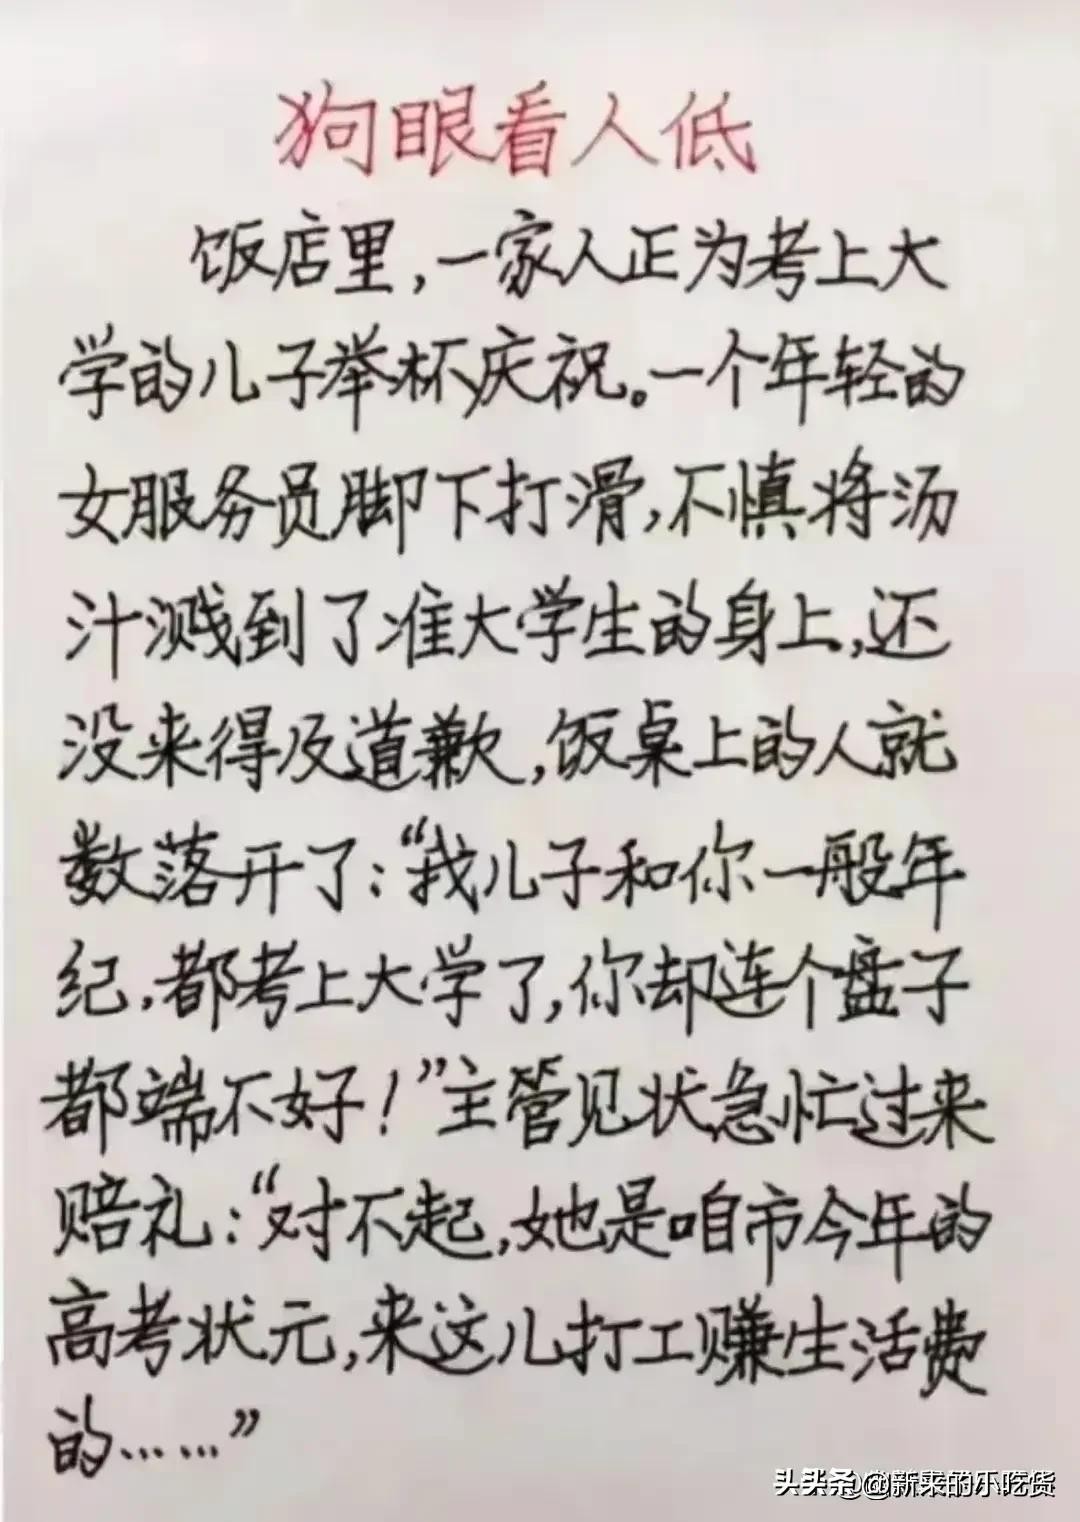 狗眼看人低
饭店里，一家人正为考上大
学的儿子举杯庆祝。一个年轻的
女服务员脚下打滑，不慎将汤
汁溅到了准大学生的身上，还
没来得及道歉，饭桌上的人就
数落开了：“我儿子和你一般年
纪，都考上大学了，你却连个盘子
都端不好！”主管见状急忙过来
赔礼：“对不起，她是咱市今年的
高考状元，来这儿打工赚生活费
的……”
头条 @新来的乐吃货